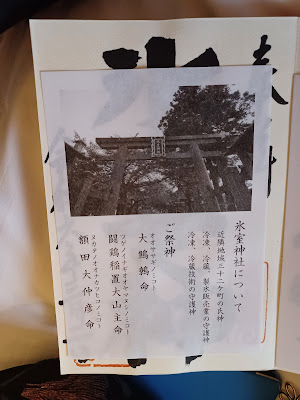 氷室神社について
近隣地域三十二ケ町の氏神
冷凍、冷蔵、製氷販売業の守護神
冷凍、冷蔵技術の守護神
ご祭神
オオサザギノミコト
大鷦鷯命
ツゲノイナギオオヤマヌシノミコト
闘鶏稲置大山主命
ヌカタノオオナカツヒコノミコト
額田大仲彦命